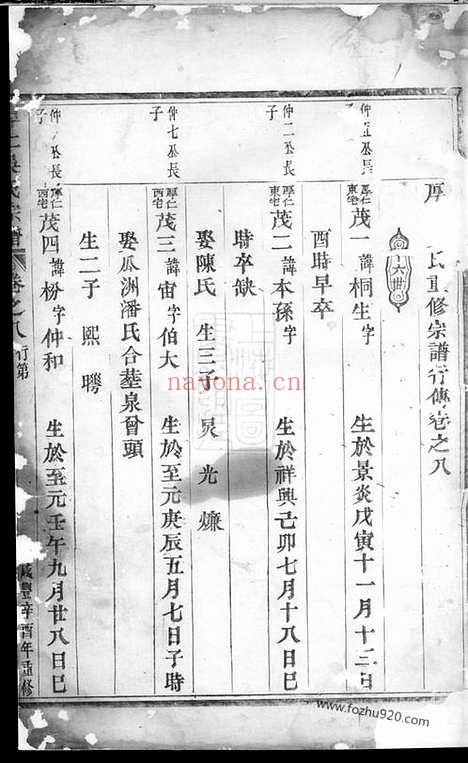 厚
氏重修宗譜行傳卷之八
十六世
仲五公長子
厚仁東宅茂一諱桐生字
生於景炎戊寅十一月十三日
酉時早卒
仲二公長子
厚仁東宅茂二諱本孫字
生於祥興己卯七月十八日巳
時卒缺
娶陳氏 生三子 炅 光 爊
仲七公長子
厚仁西宅茂三諱宙字伯大
生於至元庚辰五月七日子時
娶瓜洲潘氏合塟泉會頭
生二子 熙 聘
仲 公長子
厚仁西宅茂四諱枌字仲和
生於至元壬午九月廿八日巳
氏宗譜 卷之八 行第
咸豐辛酉年重修
nayona.cn
www.fozhu920.com